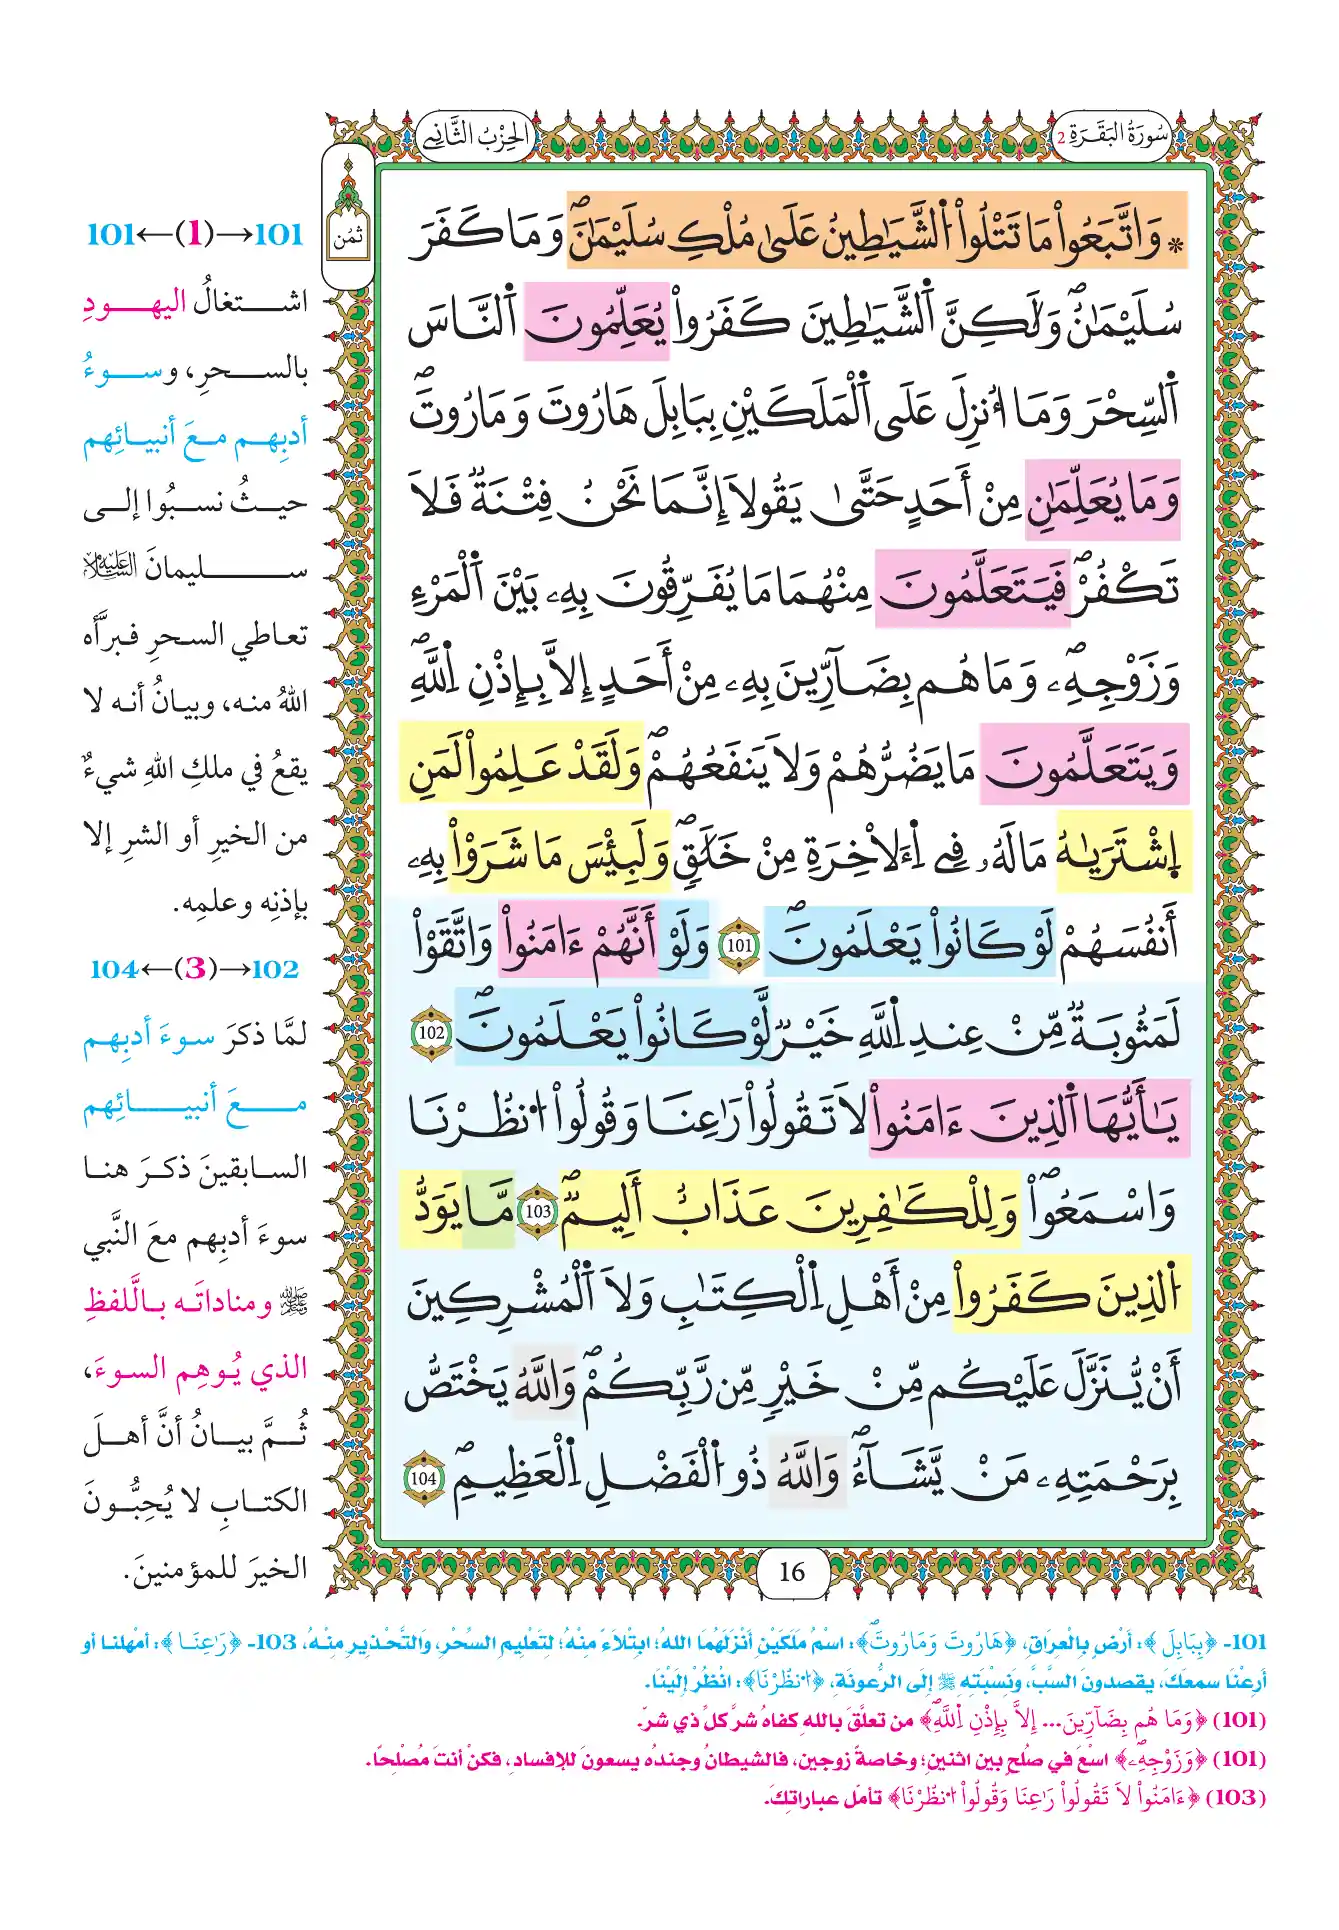 سُورَةُ البَقَرَةِ 2
الحِزْبُ الثَّانِي
ثُمُن
* وَاتَّبَعُواْ مَا تَتْلُواْ اُ۬لشَّيَٰطِينُ عَلَىٰ مُلْكِ سُلَيْمَٰنَۖ وَمَا كَفَرَ
سُلَيْمَٰنُۖ وَلَٰكِنَّ اَ۬لشَّيَٰطِينَ كَفَرُواْ يُعَلِّمُونَ اَ۬لنَّاسَ
اَ۬لسِّحْرَ وَمَا أُنزِلَ عَلَى اَ۬لْمَلَكَيْنِ بِبَابِلَ هَٰرُوتَ وَمَٰرُوتَۖ
وَمَا يُعَلِّمَٰنِ مِنْ أَحَدٍ حَتَّىٰ يَقُولَا إِنَّمَا نَحْنُ فِتْنَةٌ فَلَا
تَكْفُرْۖ فَيَتَعَلَّمُونَ مِنْهُمَا مَا يُفَرِّقُونَ بِهِۦ بَيْنَ اَ۬لْمَرْءِ
وَزَوْجِهِۦۖ وَمَا هُم بِضَآرِّينَ بِهِۦ مِنْ أَحَدٍ إِلَّا بِإِذْنِ اِ۬للَّهِۖ
وَيَتَعَلَّمُونَ مَا يَضُرُّهُمْ وَلَا يَنفَعُهُمْۖ وَلَقَدْ عَلِمُواْ لَمَنِ
اِ۪شْتَرَيٰهُ مَا لَهُۥ فِي اِ۬لَأخِرَةِ مِنْ خَلَٰقٍۖ وَلَبِئْسَ مَا شَرَوْاْ بِهِۦ
أَنفُسَهُمْ لَوْ كَانُواْ يَعْلَمُونَۖ 101 وَلَوْ أَنَّهُمْ ءَامَنُواْ وَاتَّقَوْاْ
لَمَثُوبَةٌ مِّنْ عِندِ اِ۬للَّهِ خَيْرٌ لَّوْ كَانُواْ يَعْلَمُونَۖ 102
يَٰأَيُّهَا اَ۬لذِينَ ءَامَنُواْ لَا تَقُولُواْ رَٰعِنَا وَقُولُواْ اُ۟نظُرْنَا
وَاسْمَعُواْۖ وَلِلْكَٰفِرِينَ عَذَابٌ أَلِيمٌۖ 103 مَّا يَوَدُّ
اُ۬لذِينَ كَفَرُواْ مِنْ أَهْلِ اِ۬لْكِتَٰبِ وَلَا اَ۬لْمُشْرِكِينَ
أَنْ يُّنَزَّلَ عَلَيْكُم مِّنْ خَيْرٍ مِّن رَّبِّكُمْۖ وَاللَّهُ يَخْتَصُّ
بِرَحْمَتِهِۦ مَنْ يَّشَآءُۖ وَاللَّهُ ذُو اُ۬لْفَضْلِ اِ۬لْعَظِيمِۖ 104
16
101←(1)→101
اشتغالُ اليهودِ
بالسحرِ، وسوءُ
أدبِهم معَ أنبيائِهم
حيثُ نسبُوا إلى
سليمانَ عليه السلام
تعاطي السحرِ فبرَّأه
اللهُ منه، وبيانُ أنه لا
يقعُ في ملكِ اللهِ شيءٌ
من الخيرِ أو الشرِ إلا
بإذنِه وعلمِه.
104←(3)→102
لمَّا ذكرَ سوءَ أدبِهم
معَ أنبيائِهم
السابقينَ ذكرَ هنا
سوءَ أدبِهم معَ النَّبي
ﷺ ومناداتَه باللَّفظِ
الذي يُوهِم السوءَ،
ثُمَّ بيانُ أنَّ أهلَ
الكتابِ لا يُحِبُّونَ
الخيرَ للمؤمنينَ.
101- ﴿بِبَابِلَ﴾: أرْضٍ بِالْعِرَاقِ، ﴿هَٰرُوتَ وَمَٰرُوتَۖ﴾: اسْمُ مَلَكَيْنِ أَنْزَلَهُمَا اللهُ؛ ابْتِلَاءً مِنْهُ؛ لِتَعْلِيمِ السِّحْرِ، وَالتَّحْذِيرِ مِنْهُ، 103- ﴿رَٰعِنَا﴾: أمْهلنا أو
أرعْنا سمعكَ، يقصدونَ السبَّ، ونِسْبَتِهِ ﷺ إلى الرعُونَةِ، ﴿اُ۟نظُرْنَا﴾: انْظُرْ إِلَيْنَا.
(101) ﴿وَمَا هُم بِضَآرِّينَ... إِلَّا بِإِذْنِ اِ۬للَّهِۖ﴾ من تعلَّقَ باللهِ كفاهُ شرَّ كلِّ ذي شرّ.
(101) ﴿وَزَوْجِهِۦۖ﴾ اسْعَ في صُلحٍ بين اثنينِ؛ وخاصةً زوجين، فالشيطانُ وجندُه يسعونَ للإفسادِ، فكنْ أنتَ مُصْلِحًا.
(103) ﴿ءَامَنُواْ لَا تَقُولُواْ رَٰعِنَا وَقُولُواْ اُ۟نظُرْنَا﴾ تأمّل عباراتِكَ.